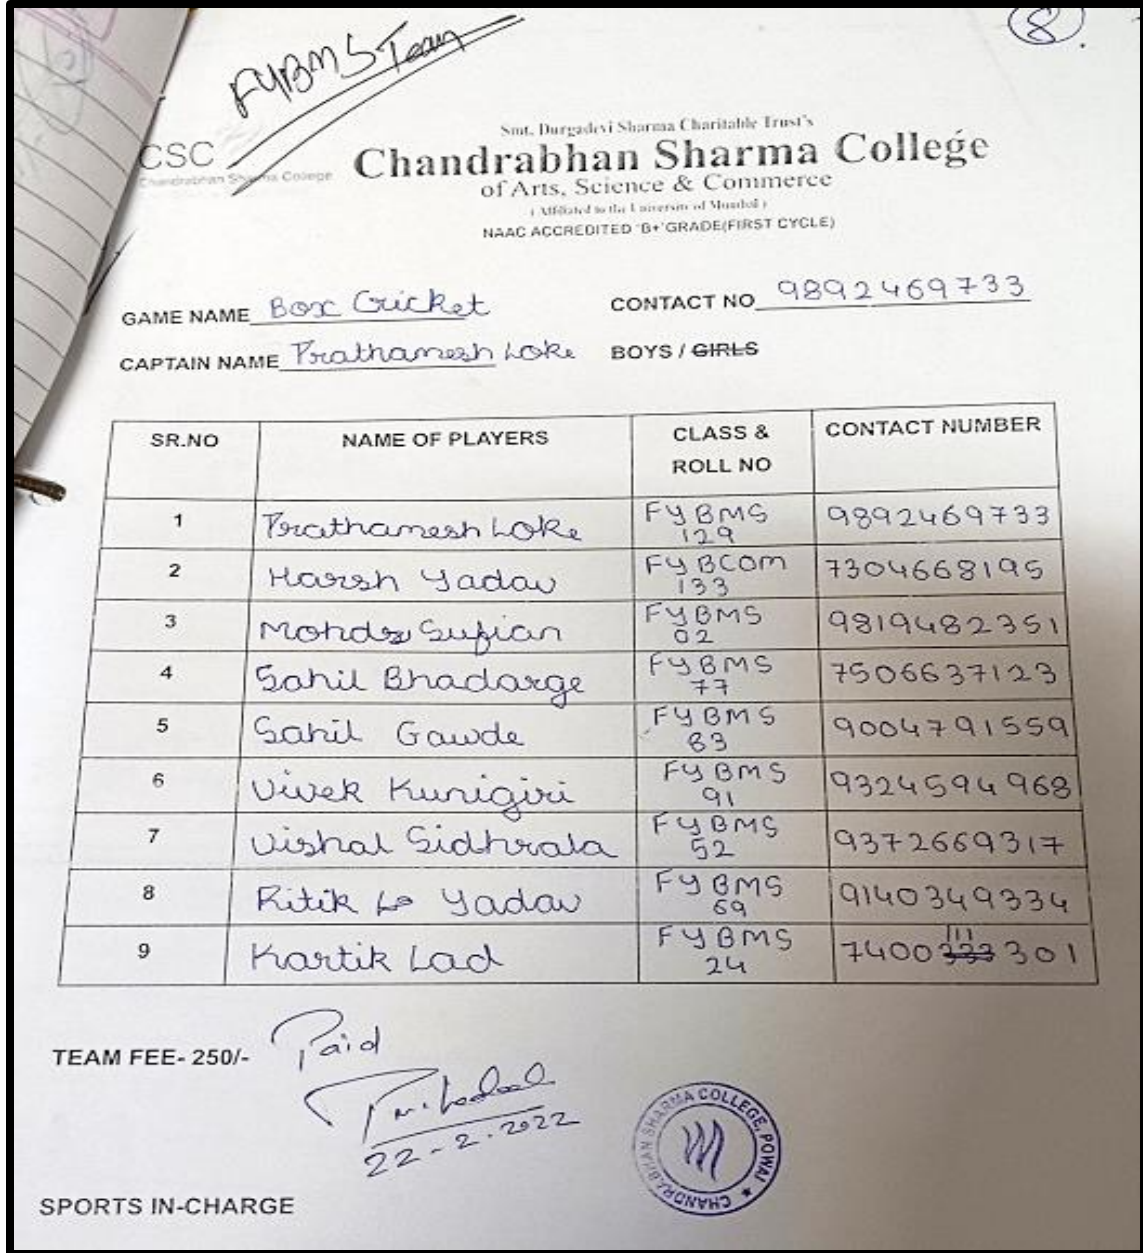 FYBMS Team
8.
Smt. Durgadevi Sharma Charitable Trust's
CSC
Chandrabhan Sharma College
Chandrabhan Sharma College
of Arts, Science & Commerce
( Affiliated to the University of Mumbai )
NAAC ACCREDITED 'B+' GRADE(FIRST CYCLE)
GAME NAME Box Cricket CONTACT NO 9892469733
CAPTAIN NAME Prathamesh Loke BOYS / GIRLS
SR.NO NAME OF PLAYERS CLASS & ROLL NO CONTACT NUMBER
1 Prathamesh Loke FYBMS 129 9892469733
2 Harsh Yadav FYBCOM 133 7304668195
3 Mohd Sufian FYBMS 02 9819482351
4 Sahil Bhadarge FYBMS 77 7506637123
5 Sahil Gawde FYBMS 83 9004791559
6 Vivek Kunigiri FYBMS 91 9324594968
7 Vishal Sidhrala FYBMS 52 9372669317
8 Ritik Yadav FYBMS 69 9140349334
9 Kartik Lad FYBMS 24 7400111301
TEAM FEE- 250/- Paid
22-2-2022
CHANDRABHAN SHARMA COLLEGE, POWAI
SPORTS IN-CHARGE